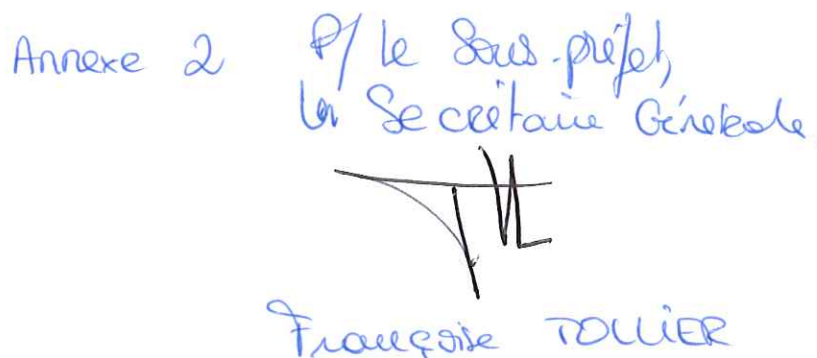 Annexe 2 P/ le Sous-préfet,
la Secrétaire Générale
Françoise TOLLIER